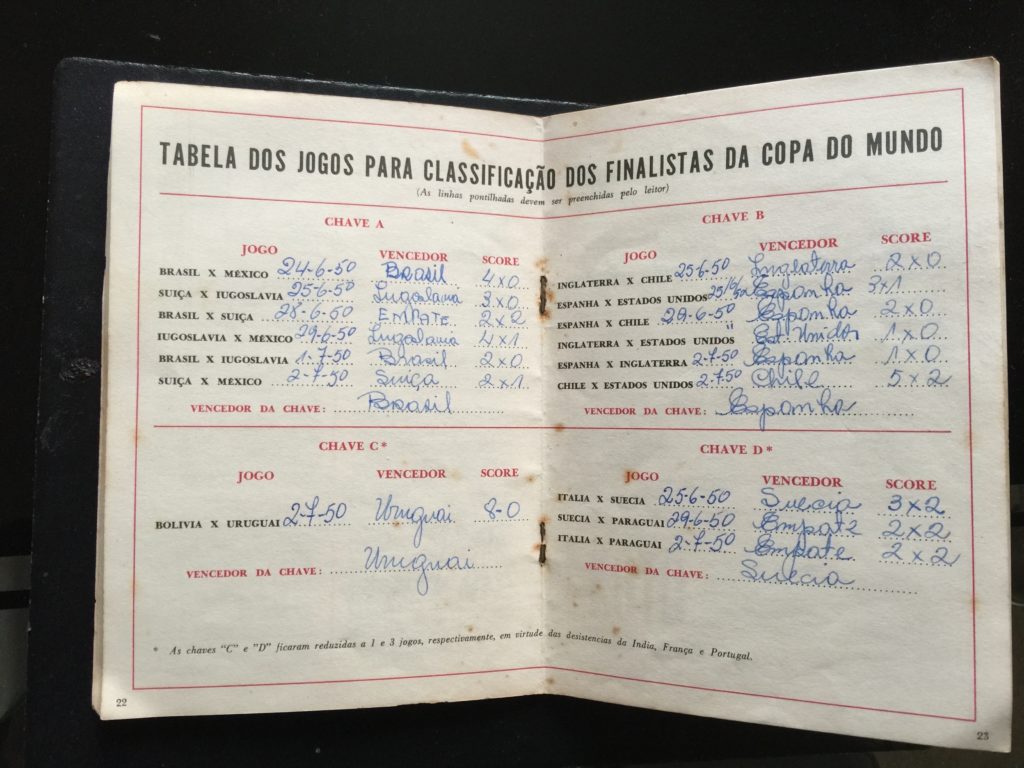 TABELA DOS JOGOS PARA CLASSIFICAÇÃO DOS FINALISTAS DA COPA DO MUNDO
(As linhas pontilhadas devem ser preenchidas pelo leitor)
CHAVE A
JOGO VENCEDOR SCORE
BRASIL X MÉXICO 24-6-50 Brasil 4x0
SUIÇA X IUGOSLAVIA 25-6-50 Iugoslavia 3x0
BRASIL X SUIÇA 28-6-50 EMPATE 2x2
IUGOSLAVIA X MÉXICO 29-6-50 Iugoslavia 4x1
BRASIL X IUGOSLAVIA 1-7-50 Brasil 2x0
SUIÇA X MÉXICO 2-7-50 Suiça 2x1
VENCEDOR DA CHAVE: Brasil
CHAVE C*
JOGO VENCEDOR SCORE
BOLIVIA X URUGUAI 2-7-50 Uruguai 8-0
VENCEDOR DA CHAVE: Uruguai
CHAVE B
JOGO VENCEDOR SCORE
INGLATERRA X CHILE 25-6-50 Inglaterra 2x0
ESPANHA X ESTADOS UNIDOS 25/6/50 Espanha 3x1
ESPANHA X CHILE 29-6-50 Espanha 2x0
INGLATERRA X ESTADOS UNIDOS " Est. Unidos 1x0
ESPANHA X INGLATERRA 2-7-50 Espanha 1x0
CHILE X ESTADOS UNIDOS 2-7-50 Chile 5x2
VENCEDOR DA CHAVE: Espanha
CHAVE D*
JOGO VENCEDOR SCORE
ITALIA X SUECIA 25-6-50 Suecia 3x2
SUECIA X PARAGUAI 29-6-50 Empate 2x2
ITALIA X PARAGUAI 2-7-50 Empate 2x2
VENCEDOR DA CHAVE: Suecia
* As chaves "C" e "D" ficaram reduzidas a 1 e 3 jogos, respectivamente, em virtude das desistencias da India, França e Portugal.
22
23